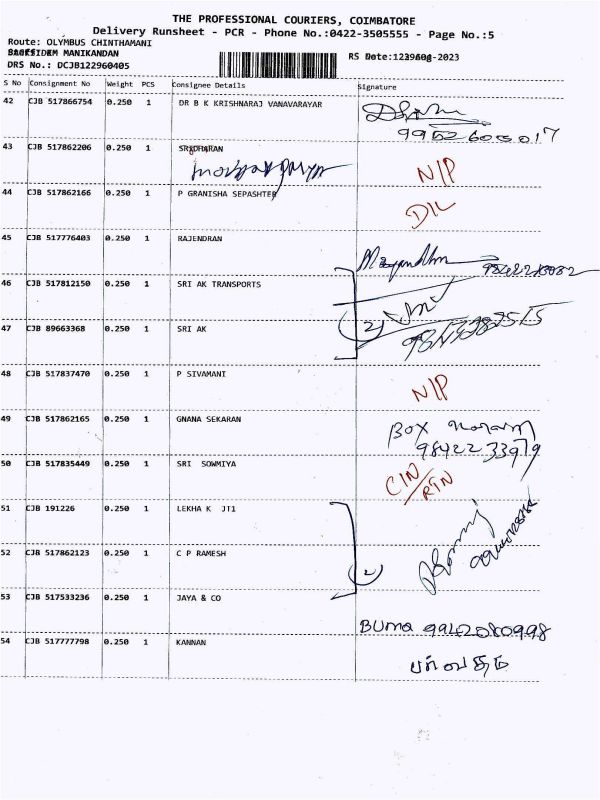 THE PROFESSIONAL COURIERS, COIMBATORE
Delivery Runsheet - PCR - Phone No.:0422-3505555 - Page No.:5
Route: OLYMBUS CHINTHAMANI
MANIKANDAN
DRS No.: DCJB122960405
S No Consignment No Weight PCS Consignee Details Signature
42 CJB 517866754 0.250 1 DR B K KRISHNARAJ VANAVARAYAR
43 CJB 517862206 0.250 1 SRIDHARAN N/P
44 CJB 517862166 0.250 1 P GRANISHA SEPASHTER D/L
45 CJB 517776403 0.250 1 RAJENDRAN
46 CJB 517812150 0.250 1 SRI AK TRANSPORTS
47 CJB 89663368 0.250 1 SRI AK
2
48 CJB 517837470 0.250 1 P SIVAMANI N/P
49 CJB 517862165 0.250 1 GNANA SEKARAN BOX
9842233979
50 CJB 517835449 0.250 1 SRI SOWMIYA CIN/RTN
51 CJB 191226 0.250 1 LEKHA K JT1
52 CJB 517862123 0.250 1 C P RAMESH
2
53 CJB 517533236 0.250 1 JAYA & CO
BUMA 9942080998
54 CJB 517777798 0.250 1 KANNAN